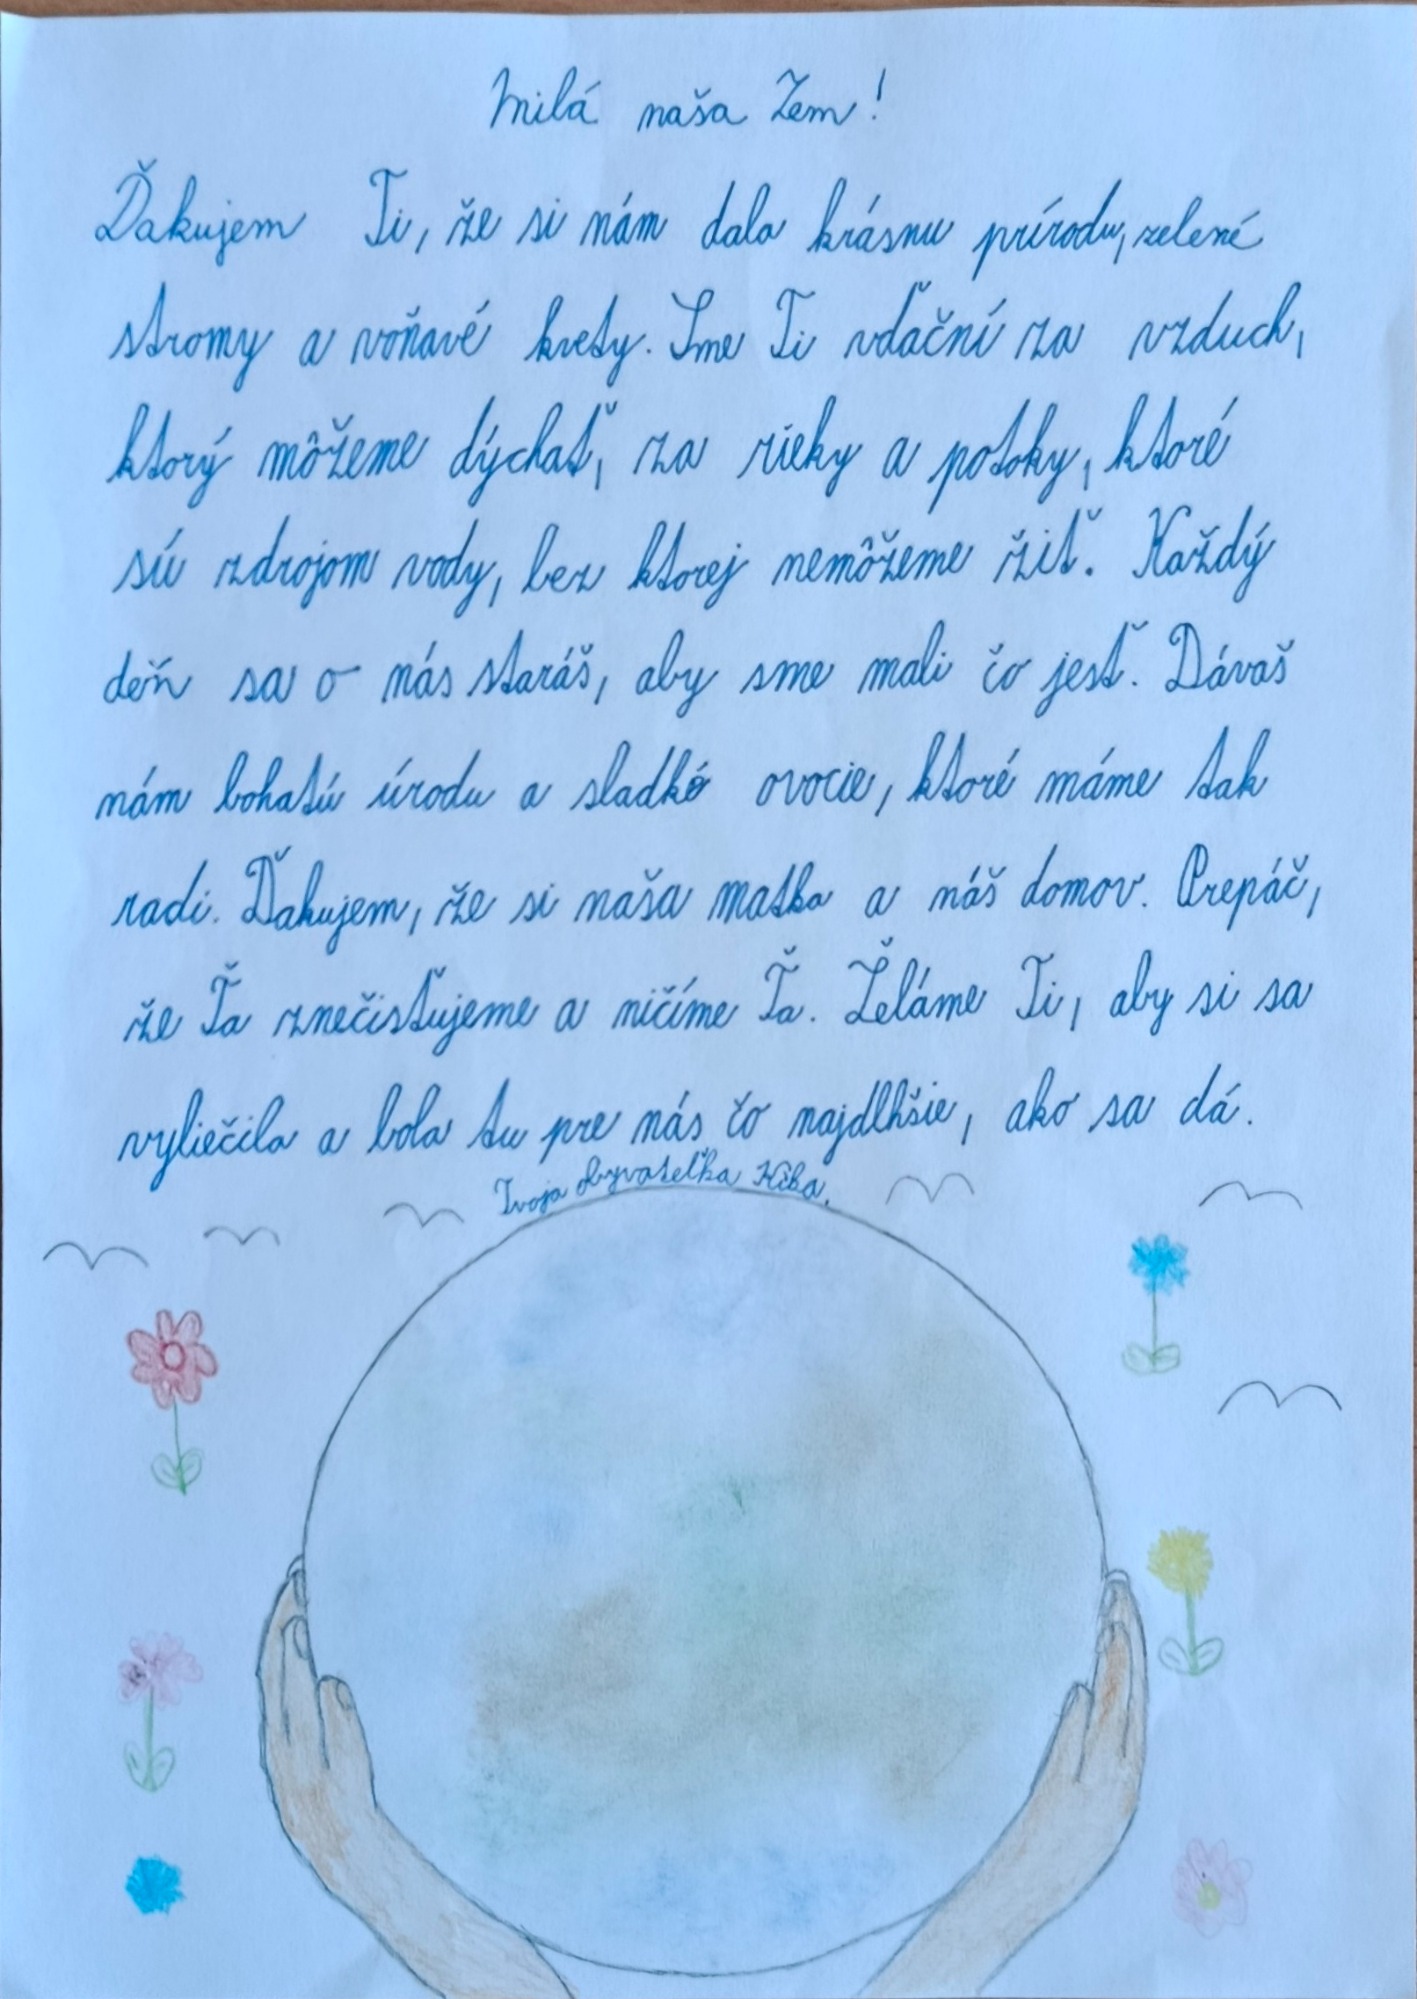 Milá naša Zem!
Ďakujem Ti, že si nám dala krásnu prírodu, zelené
stromy a voňavé kvety. Sme Ti vďační za vzduch,
ktorý môžeme dýchať, za rieky a potoky, ktoré
sú zdrojom vody, bez ktorej nemôžeme žiť. Každý
deň sa o nás staráš, aby sme mali čo jesť. Dávaš
nám bohatú úrodu a sladké ovocie, ktoré máme tak
radi. Ďakujem, že si naša matka a náš domov. Prepáč,
že Ťa znečisťujeme a ničíme Ťa. Želáme Ti, aby si sa
vyliečila a bola tu pre nás čo najdlhšie, ako sa dá.
Tvoja obyvateľka Kika.